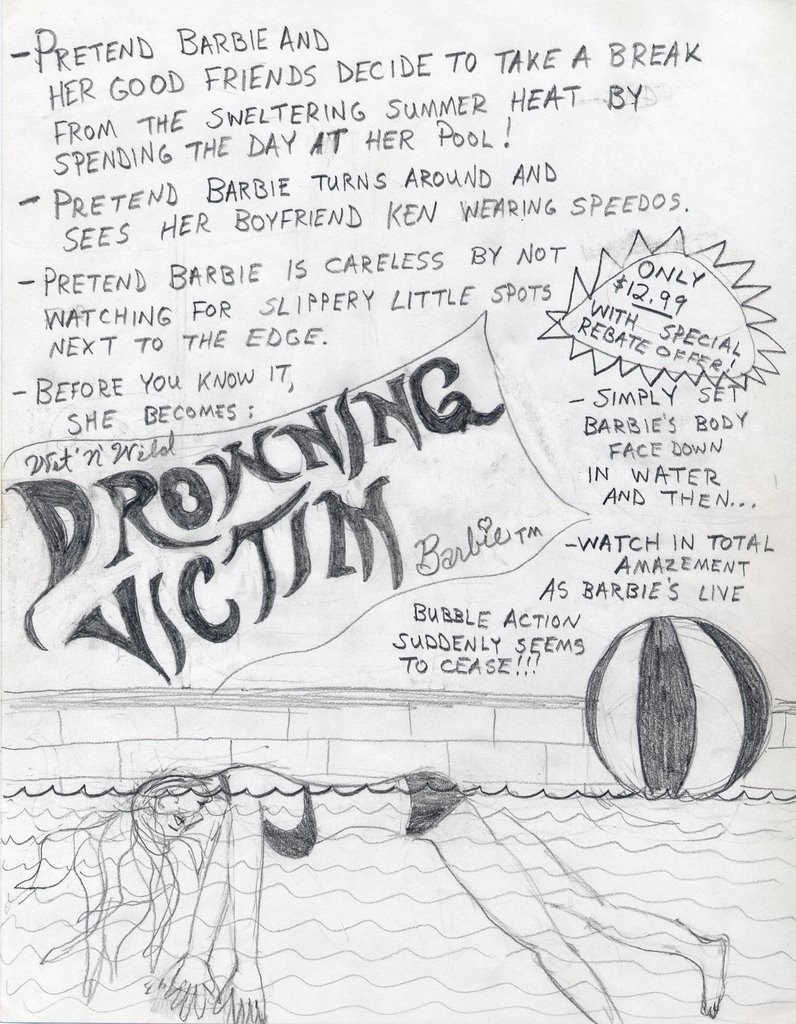 - PRETEND BARBIE AND
HER GOOD FRIENDS DECIDE TO TAKE A BREAK
FROM THE SWELTERING SUMMER HEAT BY
SPENDING THE DAY AT HER POOL!
- PRETEND BARBIE TURNS AROUND AND
SEES HER BOYFRIEND KEN WEARING SPEEDOS.
- PRETEND BARBIE IS CARELESS BY NOT
WATCHING FOR SLIPPERY LITTLE SPOTS
NEXT TO THE EDGE.
- BEFORE YOU KNOW IT,
SHE BECOMES:
Wet 'n' Wild
DROWNING
VICTIM
Barbie TM
ONLY
$12.99
WITH SPECIAL
REBATE OFFER!
- SIMPLY SET
BARBIE'S BODY
FACE DOWN
IN WATER
AND THEN...
- WATCH IN TOTAL
AMAZEMENT
AS BARBIE'S LIVE
BUBBLE ACTION
SUDDENLY SEEMS
TO CEASE!!!